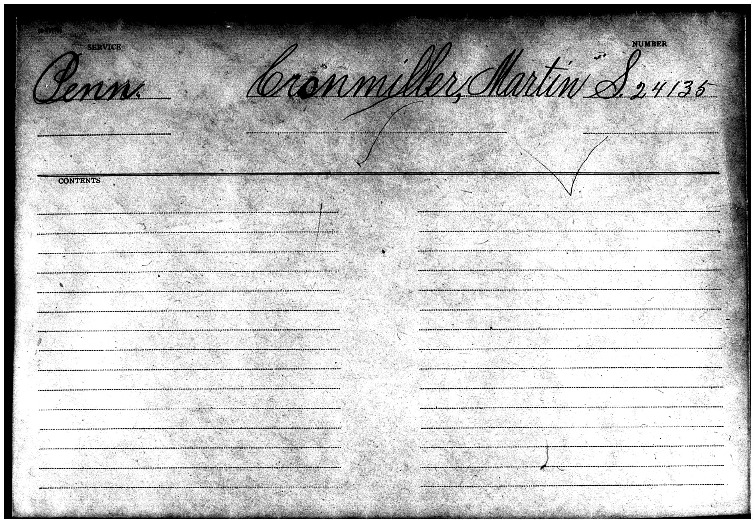 SERVICE
NUMBER
Penn. Cronmiller, Martin S. 24135
CONTENTS